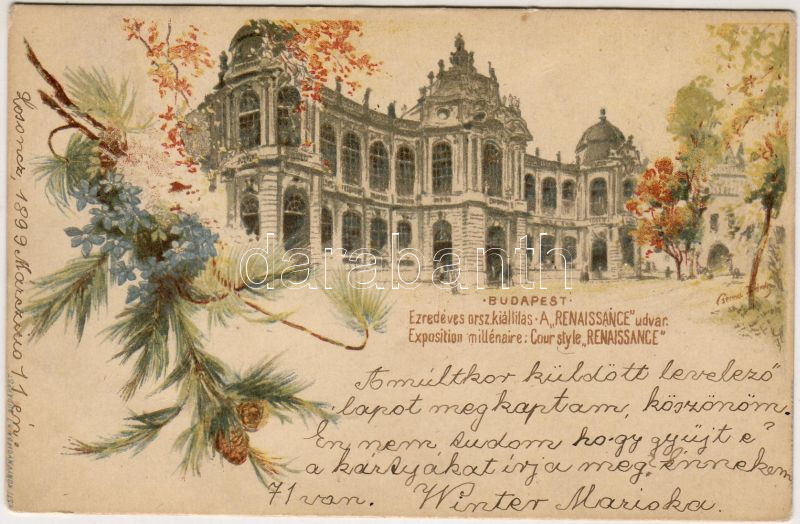 ·BUDAPEST·
Ezredéves orsz. kiállitás · A „RENAISSANCE" udvar.
Exposition millénaire: Cour style „RENAISSANCE"
A múltkor küldött levelező
lapot megkaptam, köszönöm.
Én nem tudom hogy gyüjt e
a kártyákat irja meg. Ennekem
71 van. Winter Mariska.
Losoncz, 1899 Március
darabanth